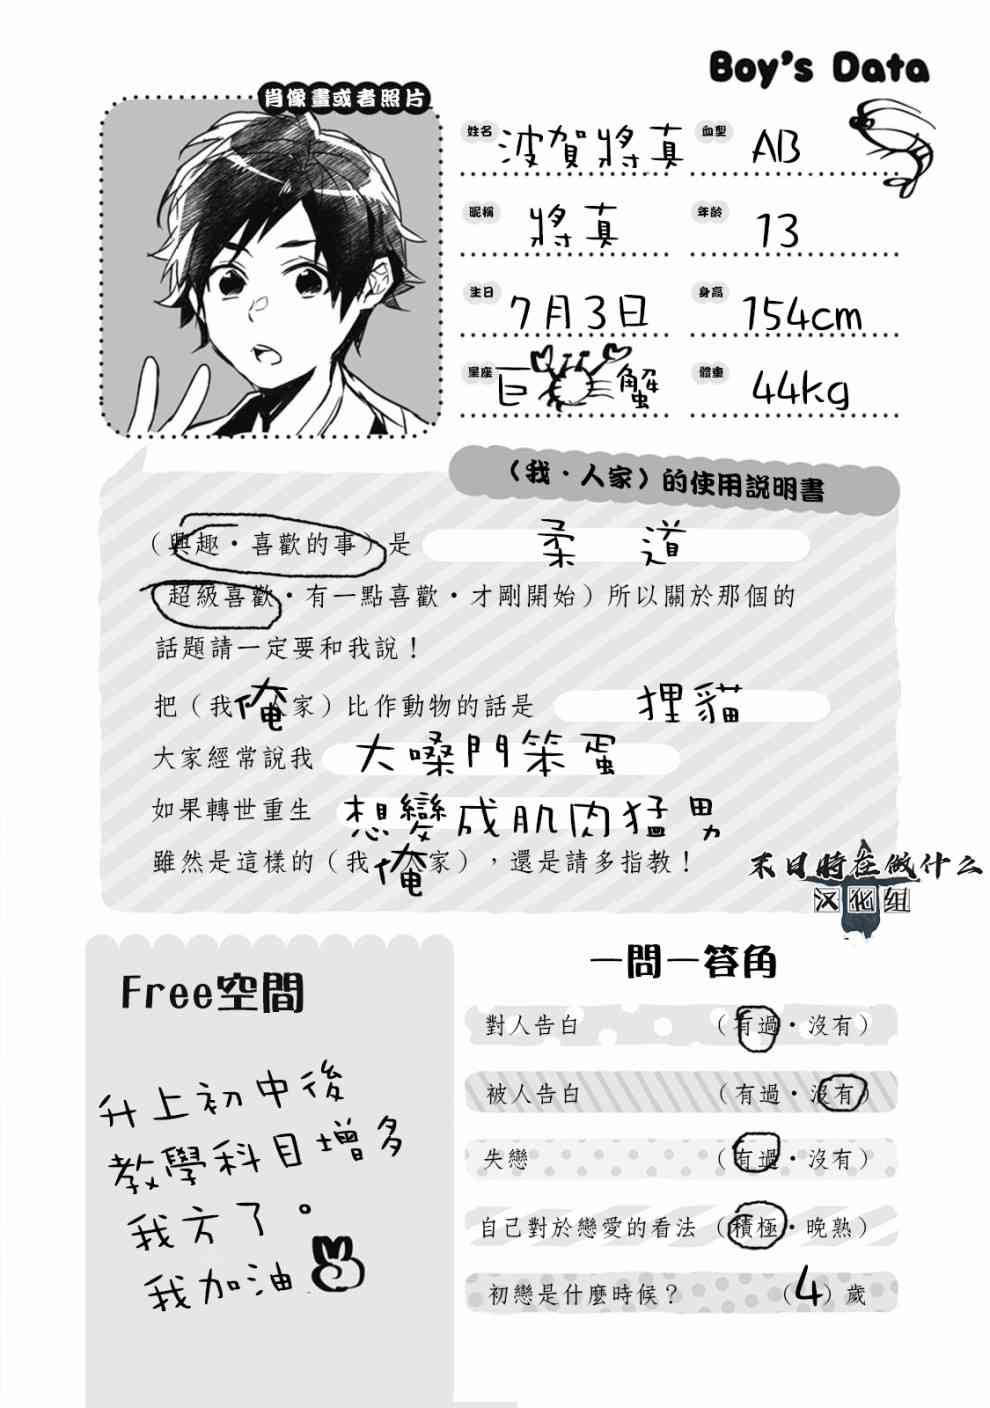 Boy's Data
肖像畫或者照片
姓名 波賀將真
血型 AB
昵稱 將真
年齡 13
生日 7月3日
身高 154cm
星座 巨蟹
體重 44kg
（我・人家）的使用說明書
（興趣・喜歡的事）是 柔道
超級喜歡・有一點喜歡・才剛開始）所以關於那個的
話題請一定要和我說！
把（我 俺 人家）比作動物的話是 狸貓
大家經常說我 大嗓門笨蛋
如果轉世重生 想變成肌肉猛男
雖然是這樣的（我 俺 人家），還是請多指教！
末日時在做什么
汉化组
Free空間
升上初中後
教學科目增多
我方了。
我加油
一問一答角
對人告白 （有過・沒有）
被人告白 （有過・沒有）
失戀 （有過・沒有）
自己對於戀愛的看法 （積極・晚熟）
初戀是什麼時候？ （4）歲